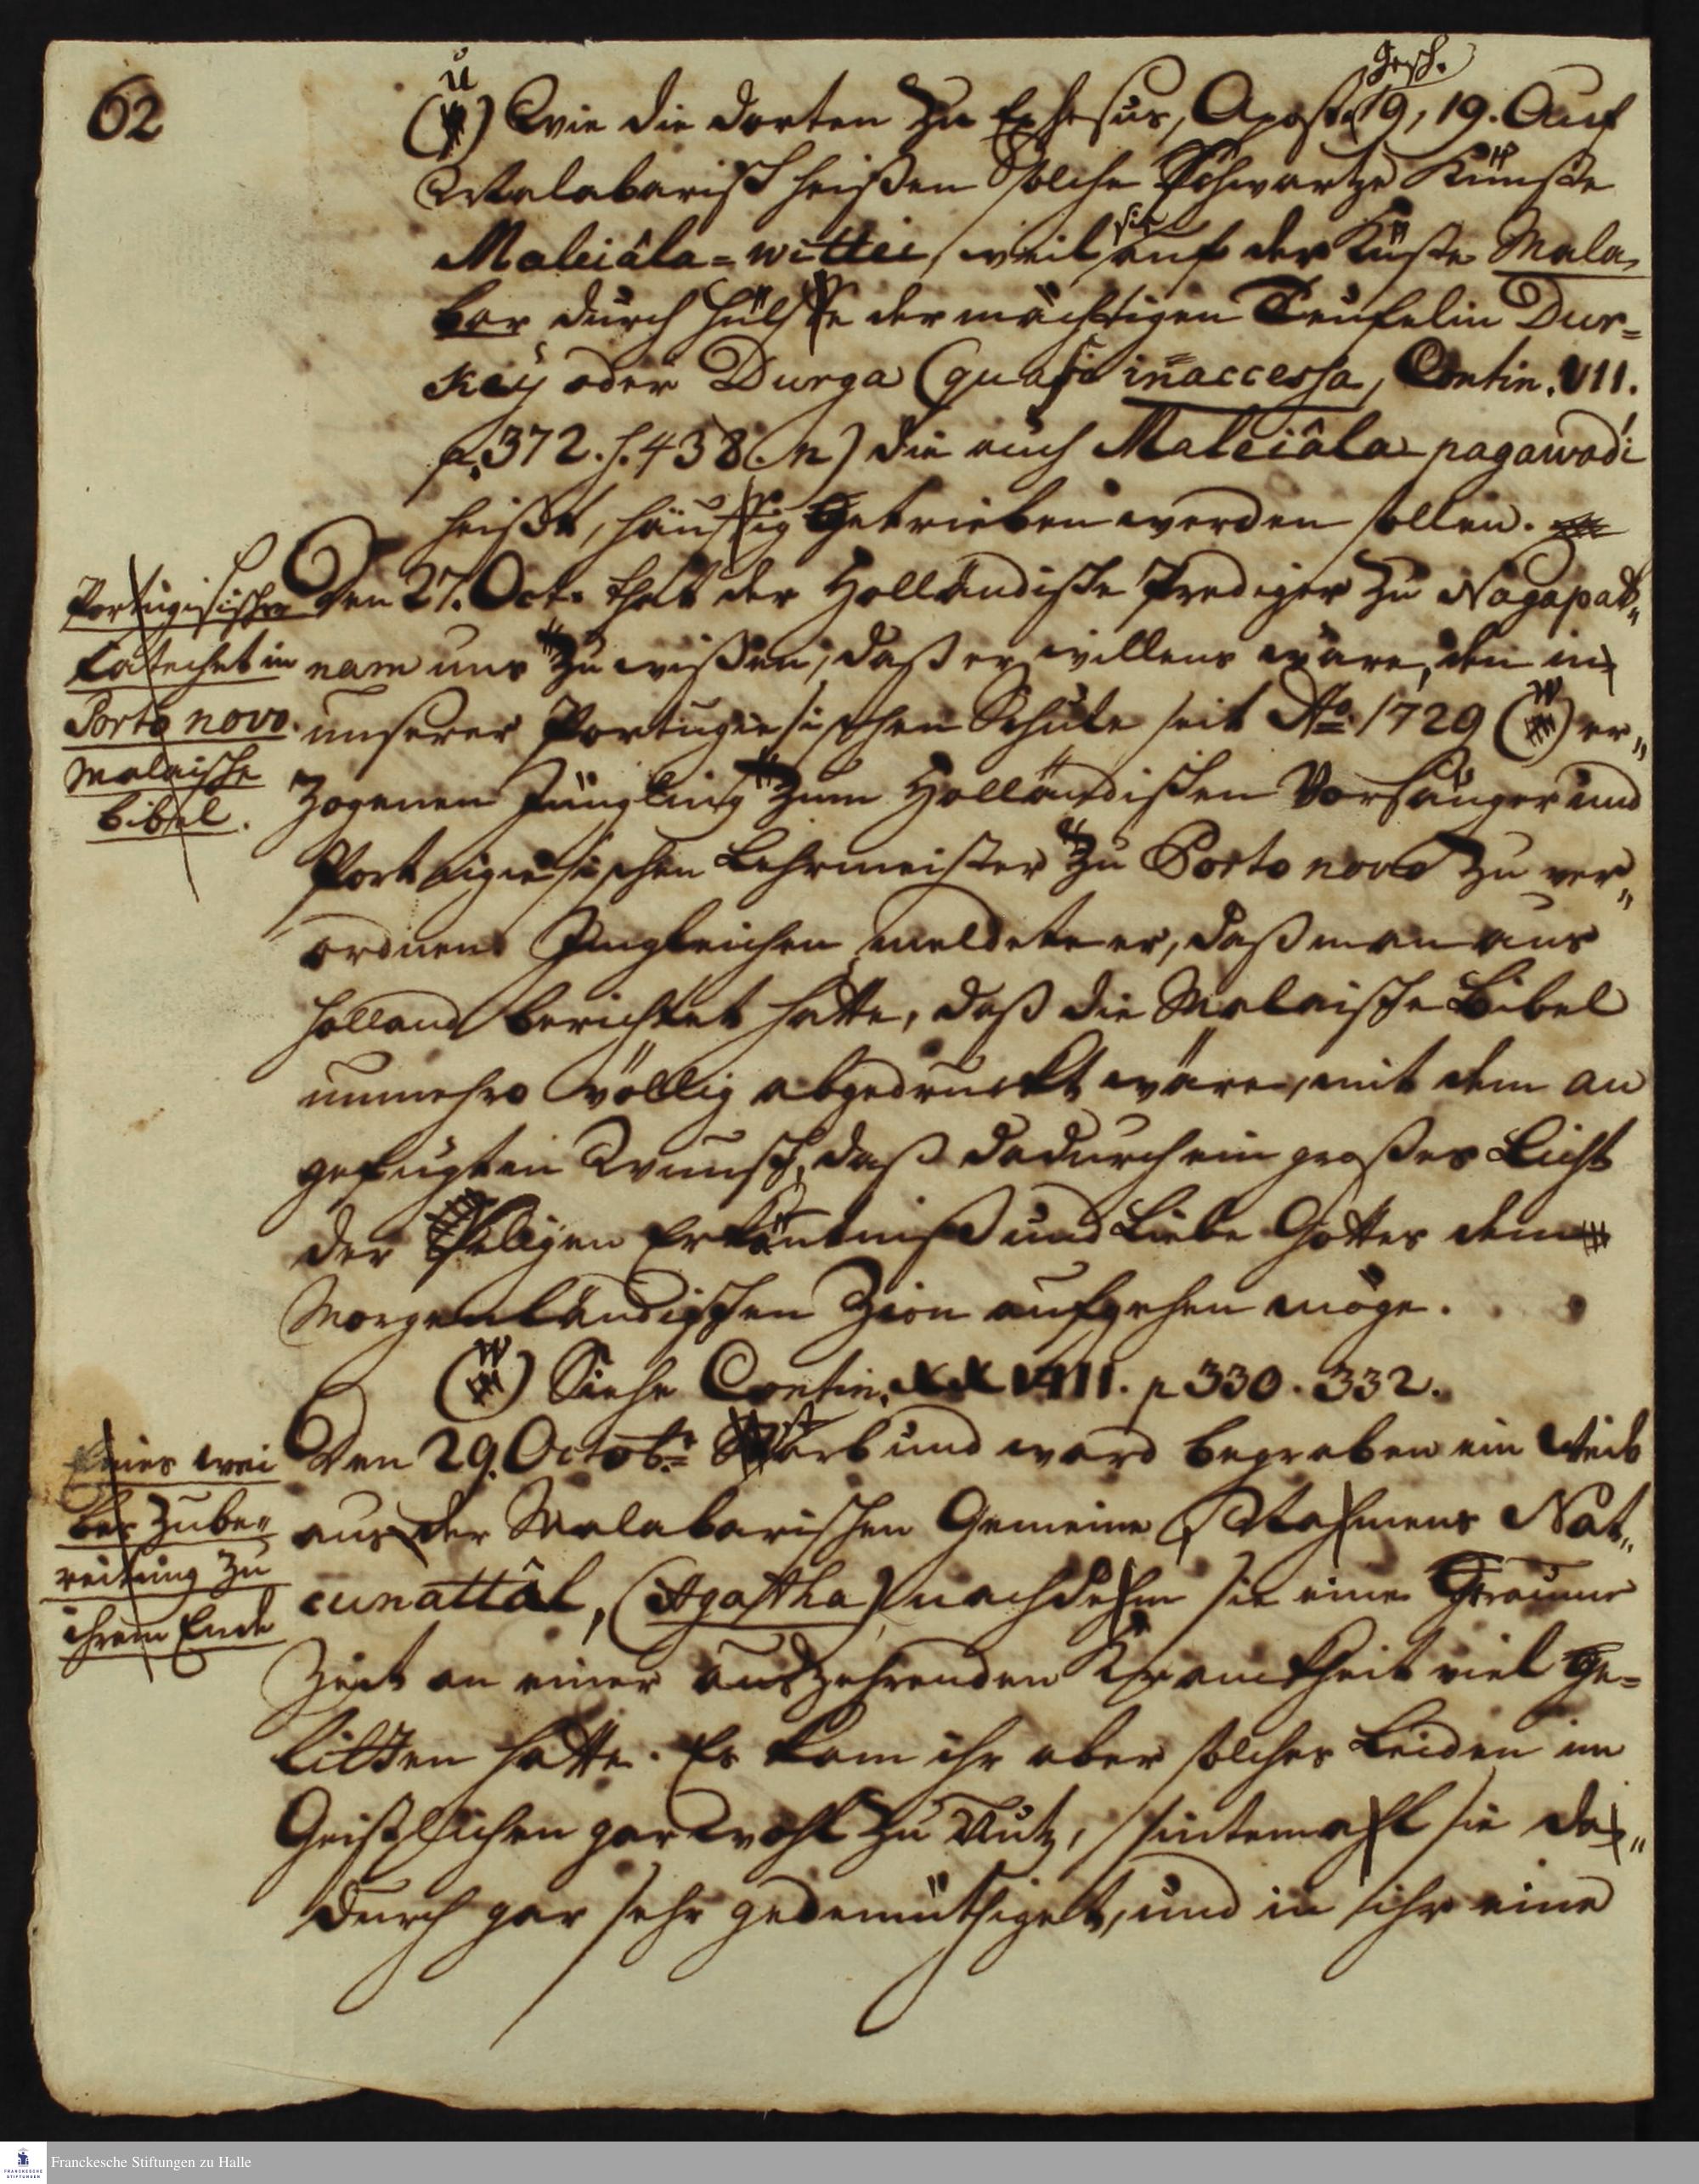 62
(u) Wie die dorten zu Ephesus, Apost. Gesch. 19, 19. Auf
Malabarisch heißen solche Schwartze Künste
Maleiâla=wittei, weil sie auf der Küste Mala,
bar durch Hülffe der mächtigen Teufelin Dur=
key oder Durga (quasi inaccessa, Contin. VII.
p. 372. s. 438. n) die auch Maleiâla pagawadi
heißt, häuffig getrieben werden sollen.
Portugisischer
Catechet in
Porto novo.
Malaische
Bibel.
Den 27. Oct. that der Holländische Prediger zu Nagapat„
nam uns zu wißen, daß er willens wäre, den in
unserer Portugiesischen Schule seit Ao. 1729 (w) er„
zogenen Jüngling zum Holländischen Vorsänger und
Portugiesischen Lehrmeister zu Porto novo zu ver„
ordnen. Ingleichen meldete er, daß man aus
Holland berichtet hätte, daß die Malaische Bibel
nunmehro völlig abgedruckt wäre, mit dem an
gefügten Wunsch, daß dadurch ein großes Licht
der seligen Erkäntniß und Liebe Gottes dem
Morgenländischen Zion aufgehen möge.
(w) Siehe Contin. p 330. 332.
Eines wei
bes Zube„
reitung zu
ihrem Ende
Den 29. Octobr. starb und ward begraben ein Weib
aus der Malabarischen Gemeine, Nahmens Nat„
cunattâl, (Agatha) nachdehm sie eine geraume
Zeit an einer auszehrenden Kranckheit viel ge=
litten hatte. Es kam ihr aber solches Leiden im
Geistlichen gar wohl zu Nutz, sintemahl sie da„
durch gar sehr gedemüthiget, und in ihr eine
Franckesche Stiftungen zu Halle